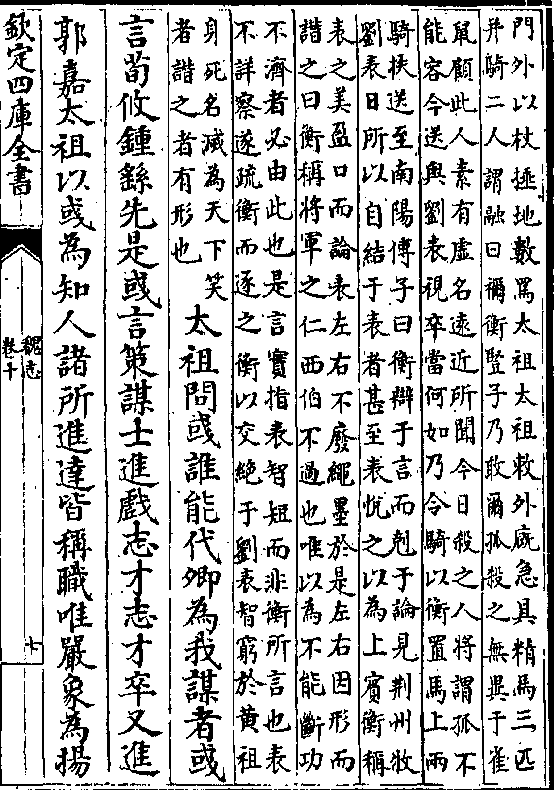 門外以杖捶地數罵太祖太祖敕外廐急具精馬三匹
并騎二人謂融曰禰衡豎子乃敢爾孤殺之無異于雀
鼠顧此人素有虛名遠近所聞今日殺之人將謂孤不
能容今送與劉表視卒當何如乃令騎以衡置馬上兩
騎挾送至南陽傅子曰衡辯于言而剋于論見荆州牧
劉表日所以自結于表者甚至表悅之以為上賓衡稱
表之美盈口而論表左右不廢繩墨於是左右因形而
譖之曰衡稱將軍之仁西伯不過也唯以為不能斷功
不濟者必由此也是言實指表智短而非衡所言也表
不詳察遂疏衡而逐之衡以交絶于劉表智窮於黄祖
身死名滅為天下笑
者譖之者有形也
太祖問彧誰能代卿為我謀者彧
言荀攸鍾繇先是彧言策謀士進戲志才志才卒又進
郭嘉太祖以彧為知人諸所進達皆稱職唯嚴象為揚
欽定四庫全書
魏志
卷十
十